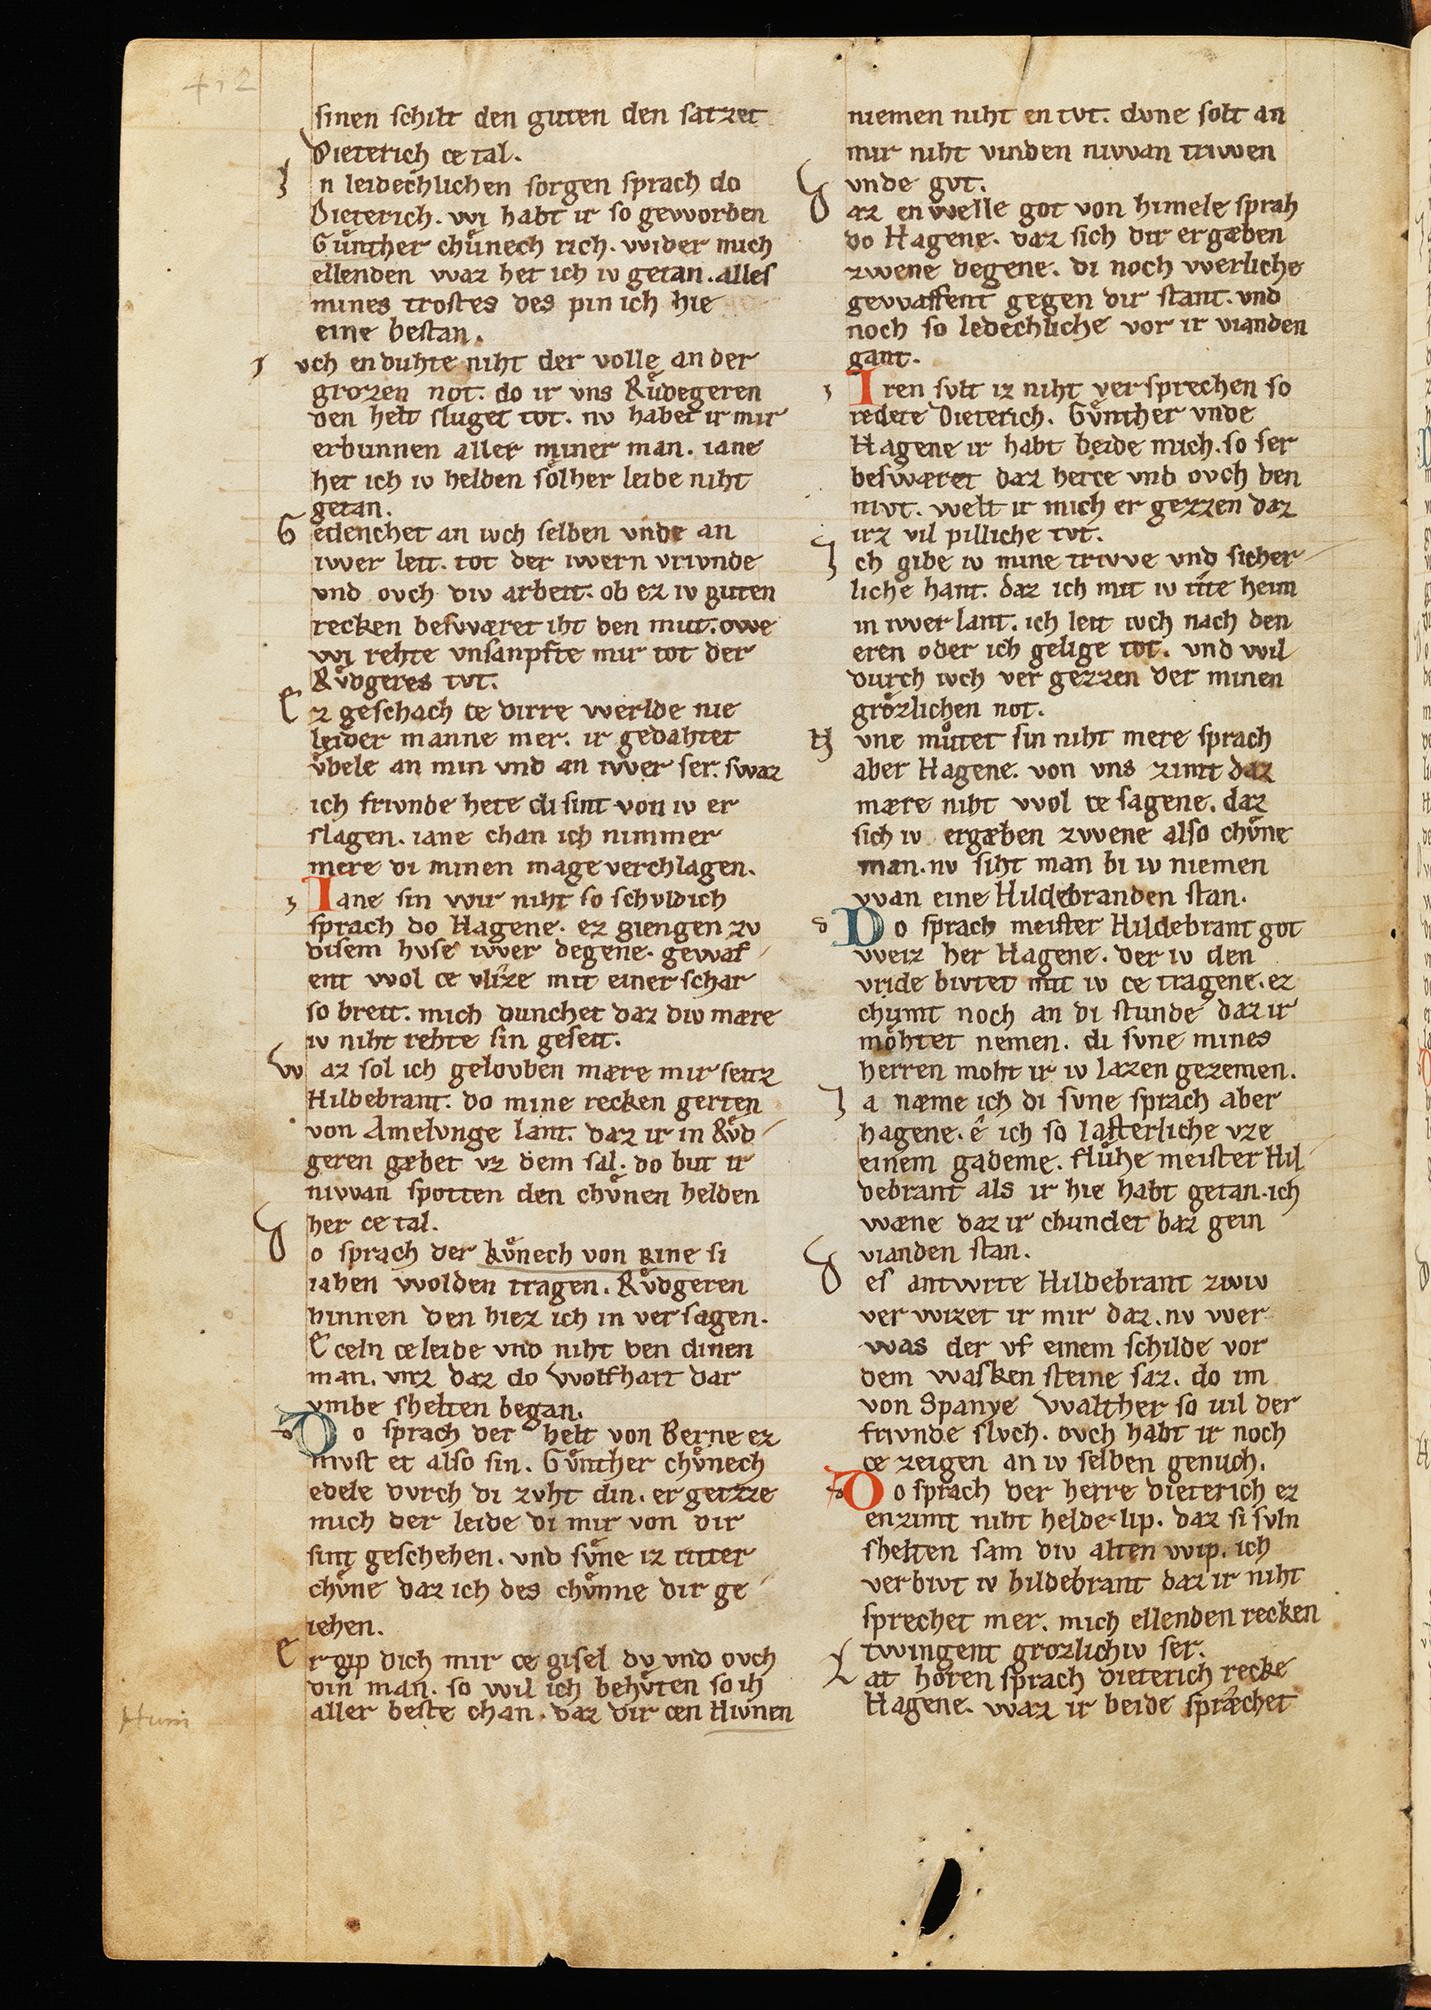 412
sinen schilt den guten den satzet
Dieterich ce tal.
J n leidechlichen sorgen sprach do
Dieterich. wi habt ir so geworben
Guͦnther chuͤnech rich. wider mich
ellenden waz het ich iv getan. alles
mines trostes des pin ich hie
eine bestan.
J vch en duhte niht der volle an der
grozen not. do ir vns Ruͤdegeren
den helt sluget tot. nv habet ir mir
erbunnen aller miner man. iane
het ich iv helden soͤlher leide niht
getan.
G edenchet an iwch selben vnde an
iwer leit. tot der iwern vriwnde
vnd ovch div arbeit. ob ez iv guten
recken beswæret iht den mut. owe
wi rehte vnsanpfte mir tot der
Ruͤdgeres tvt.
E z geschach ce dirre werlde nie
leider manne mer. ir gedahtet
vͤbele an min vnd an iwer ser. swaz
ich friwnde hete di sint von iv er
slagen. iane chan ich nimmer
mere di minen mage verchlagen.
Iane sin wir niht so schvldich
sprach do Hagene. ez giengen zv
disem hvse iwer degene. gewaf
ent wol ce vlize mit einer schar
so breit. mich dunchet daz div mære
iv niht rehte sin geseit.
W az sol ich gelovben mære mir seitz
Hildebrant. do mine recken gerten
von Amelvnge lant. daz ir in Ruͤd
geren gæbet vz dem sal. do but ir
niwan spotten den chuͤnen helden
her ce tal.
D o sprach der kuͤnech von Rine si
iahen wolden tragen. Ruͤdgeren
hinnen den hiez ich in versagen.
Eceln ce leide vnd niht den dinen
man. vnz daz do Wolfhart dar
vmbe shelten began.
Do sprach der helt von Berne ez
mvst et also sin. Guͦnther chuͤnech
edele dvrch di zvht din. ergetzze
mich der leide di mir von dir
sint geschehen. vnd suͤne iz ritter
chuͤne daz ich des chuͤnne dir ge
iehen.
E rgip dich mir ce gisel dv vnd ovch
din man. so wil ich behuͤten so ih
aller beste chan. daz dir cen Hivnen
Huni
niemen niht en tvt. dvne solt an
mir niht vinden niwan triwen
vnde gvt.
D az en welle got von himele sprah
do Hagene. daz sich dir ergæben
zwene degene. di noch werliche
gewaffent gegen dir stant. vnd
noch so ledechliche vor ir vianden
gant.
Iren svlt iz niht versprechen so
redete Dieterich. Guͦnther vnde
Hagene ir habt beide mich. so ser
beswæret daz herce vnd ovch den
mvt. welt ir mich ergezzen daz
irz vil pilliche tvt.
J ch gibe iv mine triwe vnd sicher
liche hant. daz ich mit iv rite heim
in iwer lant. ich leit iwch nach den
eren oder ich gelige tot. vnd wil
durch iwch vergezzen der minen
groͤzlichen not.
N vne muͦtet sin niht mere sprach
aber Hagene. von vns zimt daz
mære niht wol ce sagene. daz
sich iv ergæben zwene also chuͤne
man. nv siht man bi iv niemen
wan eine Hildebranden stan.
Do sprach meister Hildebrant got
weiz her Hagene. der iv den
vride bivtet mit iv ce tragene. ez
chvmt noch an di stunde daz ir
moͤhtet nemen. di svne mines
herren moht ir iv lazen gezemen.
J a næme ich di svne sprach aber
hagene. e ich so lasterliche vze
einem gademe. fluͤhe meister Hil
debrant als ir hie habt getan. ich
wæne daz ir chundet baz gein
vianden stan.
D es antwrte Hildebrant zwiv
verwizet ir mir daz. nv wer
was der vf einem schilde vor
dem wasken steine saz. do im
von Spanye Walther so vil der
friwnde slvch. ovch habt ir noch
ce zeigen an iv selben genuch.
Do sprach der herre Dieterich ez
enzimt niht helde lip. daz si svln
shelten sam div alten wip. ich
verbivt iv hildebrant daz ir niht
sprechet mer. mich ellenden recken
twingent grozlichiv ser.
L at horen sprach Dieterich recke
Hagene. waz ir beide spræchet